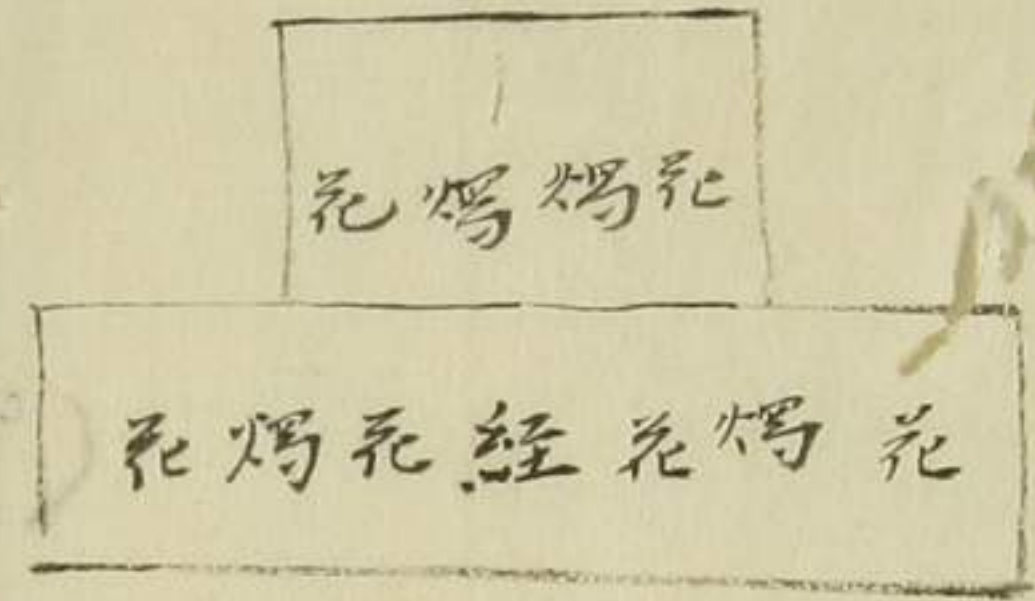 花燭燭花
花燭花経花燭花